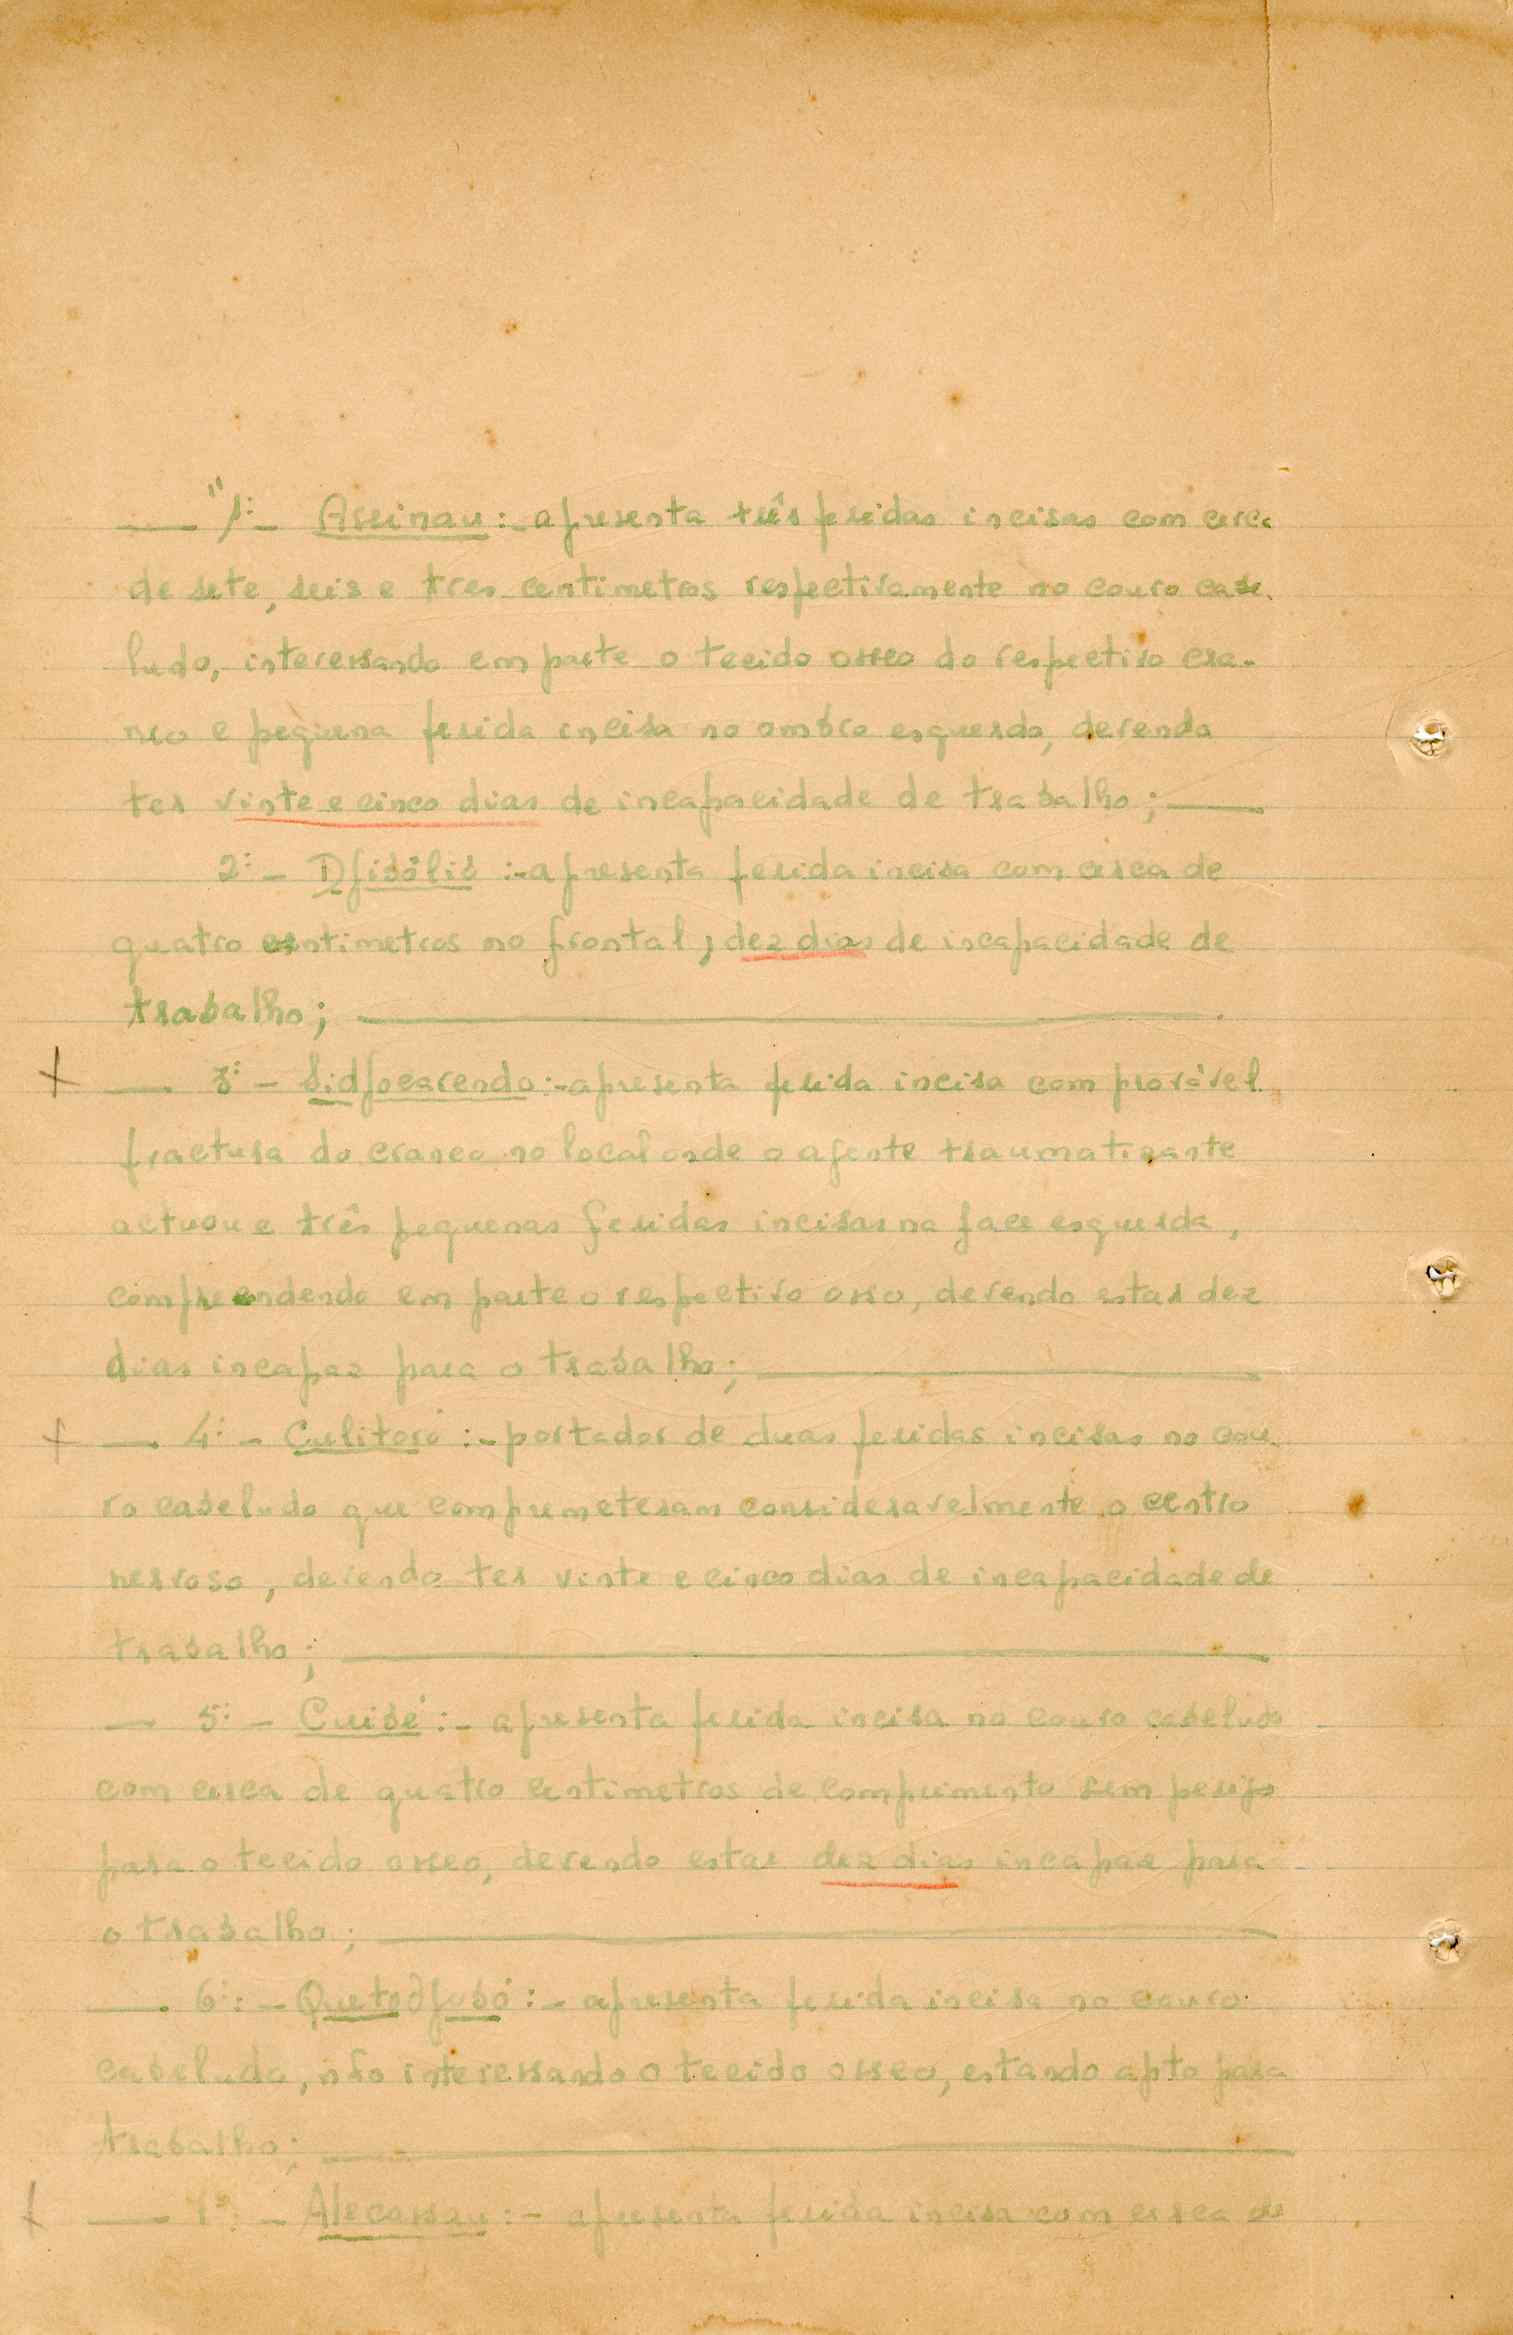 — "1º:- Assinau:- apresenta três feridas incisas com cerca
de sete, seis e tres centimetros respectivamente no couro cabe-
ludo, interessando em parte o tecido osseo do respectivo cra-
neo e pequena ferida incisa no ombro esquerdo, devendo
ter vinte e cinco dias de incapacidade de trabalho; —
2º:- Djibólis:- apresenta ferida incisa com cerca de
quatro centimetros no frontal; dez dias de incapacidade de
trabalho; —
— 3º:- Sidjocarendo:- apresenta ferida incisa com provável
fractura do craneo no local onde o agente traumatizante
actuou e três pequenas feridas incisas na face esquerda,
compreendendo em parte o respectivo osso, devendo estar dez
dias incapaz para o trabalho; —
— 4º:- Culitoró:- portador de duas feridas incisas no cou-
ro cabeludo que comprometeram consideravelmente o centro
nervoso, devendo ter vinte e cinco dias de incapacidade de
trabalho; —
— 5º:- Cuibé:- apresenta ferida incisa no couro cabeludo
com cerca de quatro centimetros de comprimento sem perigo
para o tecido osseo, devendo estar dez dias incapaz para
o trabalho; —
— 6º:- Quetodjobó:- apresenta ferida incisa no couro
cabeludo, não interessando o tecido osseo, estando apto para
trabalho; —
— :- Alecassau:- apresenta ferida incisa com cerca de